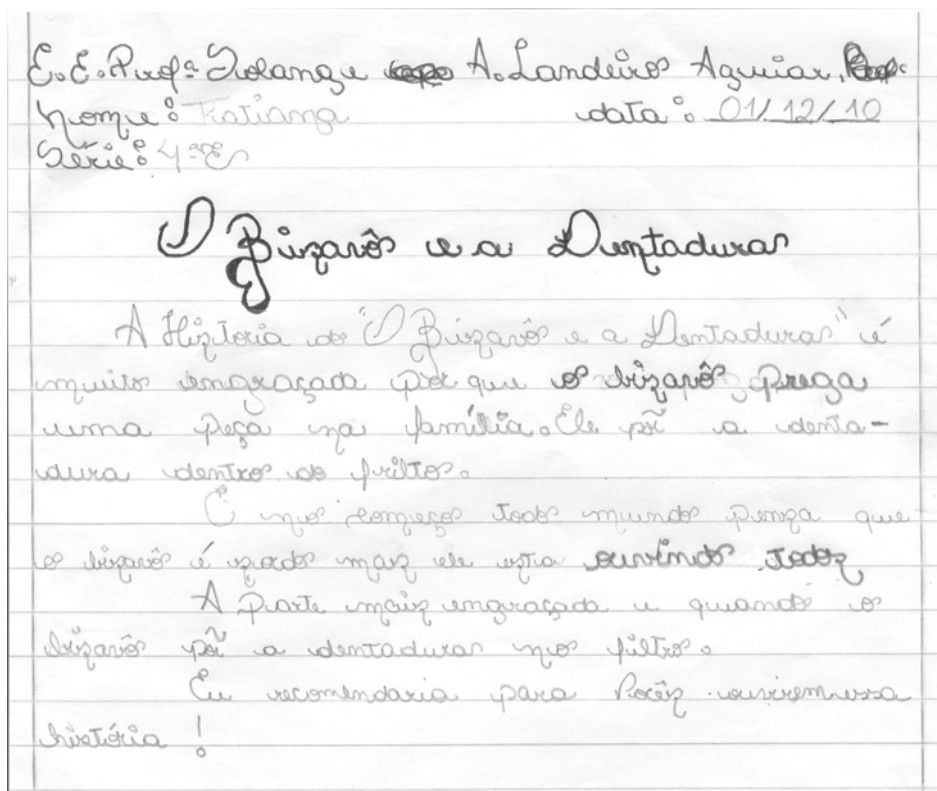 E.E.Profª Solange A. Landeiros Aguiar.
Nome: Tatiana data: 01/12/10
Série: 4ªE
O Bizavô e a Dentaduras
A Hiztoria do "O Bizavô e a Dentaduras" é
muito engraçada por que o bizavô prega
uma peça na família. Ele põi a denta-
dura dentro do friltro.
E no começo todo mundo penza que
o bizavô é surdo maiz ele esta ouvindo todoz
A parte maiz engraçada e quando o
bizavô põi a dentaduras no filtro.
Eu recomendaria para Vocêz ouvirem essa
história!